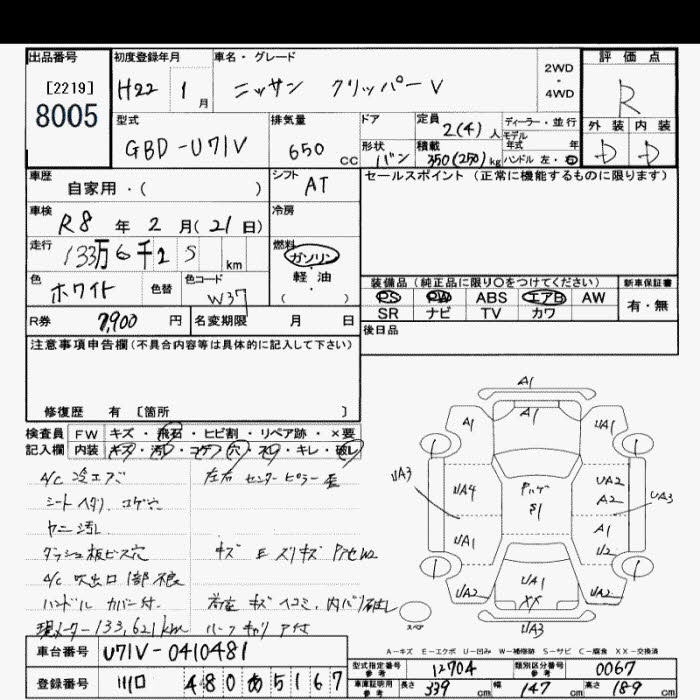 出品番号 初度登録年月 車名・グレード 2WD・4WD 評価点
[2219] 8005 H22 1月 ニッサン クリッパーV R
型式 排気量 ドア 定員 2(4)人 ディーラー・並行 外装 内装
GBD-U71V 650CC 形状 バン 積載 350(250)kg モデル年式 年 ハンドル 左・右 D D
車歴 自家用・( ) シフト AT セールスポイント(正常に機能するものに限ります)
車検 R8年2月(21日) 冷房
走行 133万6千2 5 km 燃料 ガソリン・軽油 ( )
色 ホワイト 色替 色コード W37 装備品(純正品に限り○をつけてください) 新車保証書
PS PW ABS エアB AW 有・無
SR ナビ TV カワ
R券 7,900円 名変期限 月 日 後日品
注意事項申告欄(不具合内容等は具体的に記入して下さい)
修復歴 有 [箇所 ]
検査員 FW キズ・飛石・ヒビ割・リペア跡・×要
記入欄 内装 キズ・汚レ・コゲ・穴・ネジ・キレ・破レ
A/C 冷エズ 左右 センターピラー 歪
シート ヘタリ、コゲ穴
ヤニ 汚レ
ダッシュ板ビス穴 キズ E スリキズ
A/C 吹出口 1部不良
ハンドル カバー付 荷室 キズ ヘコミ、内バリ破レ
現メーター 133,621km ルーフキャリア付
A1
A1 A1 UA1
UA3 UA4 UA2 A2 UA3
S1
UA1 A1 U2
UA2 UA1 XX UA2
UA3
1 1 1 1
スペア
A-キズ E-エクボ U-凹み W-補修跡 S-サビ C-腐食 XX-交換済
車台番号 U71V-0410481 型式指定番号 参考 12704 類別区分番号 参考 0067
登録番号 川口 480 あ 5167 車庫証明用 参考 長さ 339cm 幅 147cm 高さ 189cm